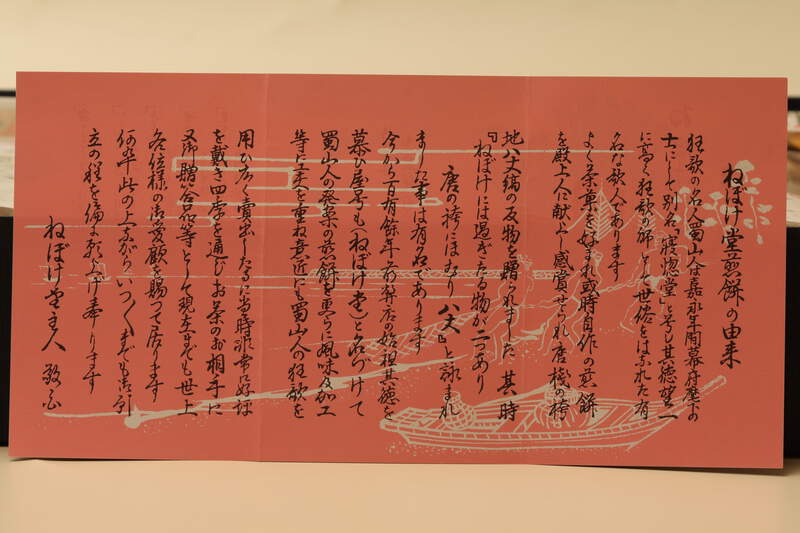 ねぼけ堂煎餅の由来
狂歌の名人蜀山人は嘉永年間幕府麾下の
士にして別名『寝惚堂』と号し其徳望一
に高く狂歌の師として世俗をはなれた有
名な歌人であります
よく茶事を好まれ或時自作の煎餅
を殿上人に献上し感賞せられ唐桟の袴
地八丈縞の反物を贈られました 其時
『ねぼけには過ぎたる物が二つあり
唐の袴にほたり八丈』と詠まれ
ました事は有名であります
今から百有餘年前弊店の始祖其徳を
慕ひ屋号も（ねぼけ堂）と名づけて
蜀山人の発案の煎餅を更らに風味及加工
等に工夫を重ね意匠にも蜀山人の狂歌を
用ひ広く賣出したるに当時非常に好評
を戴き四季を通じお茶のお相手に
又御贈答品等として現在までも世上
各位様の御愛顧を賜つて居ります
何卒此の上ながらいつ〱までも御引
立の程を偏に願上げ奉ります
ねぼけ堂主人 敬白